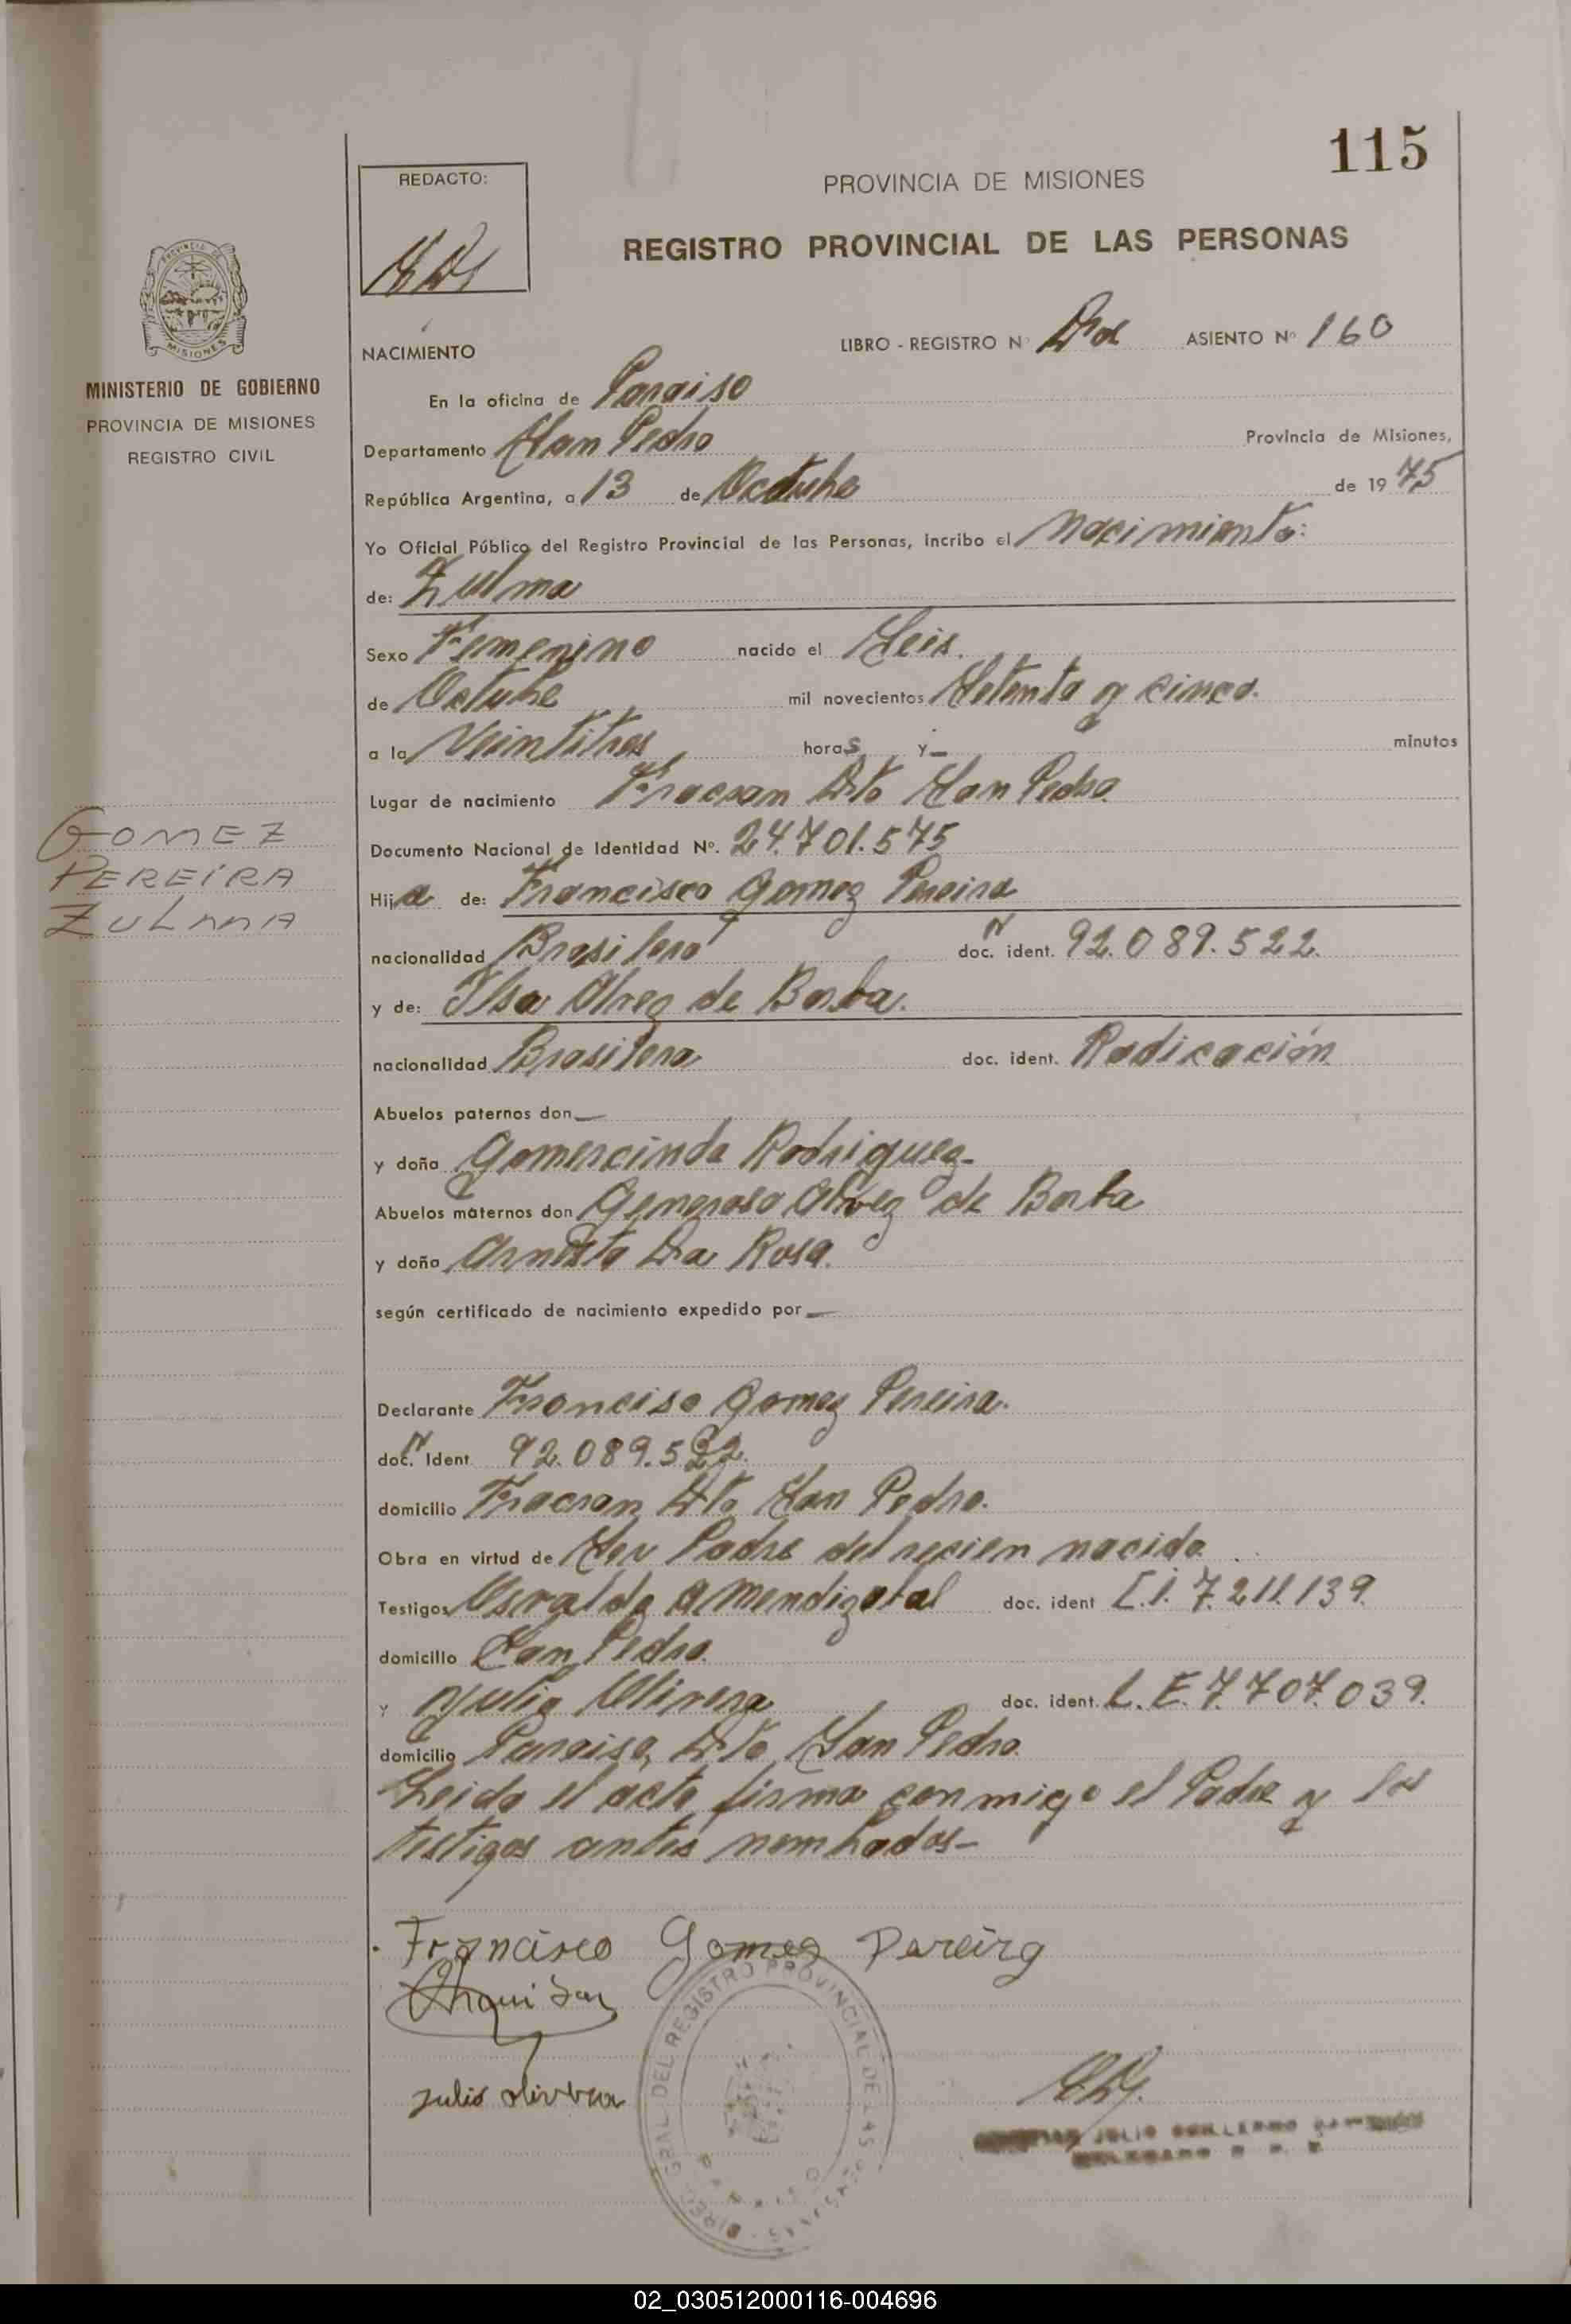 115
REDACTO:
PROVINCIA DE MISIONES
REGISTRO PROVINCIAL DE LAS PERSONAS
MISIONES
MINISTERIO DE GOBIERNO
PROVINCIA DE MISIONES
REGISTRO CIVIL
LIBRO - REGISTRO N° Dos ASIENTO N° 160
NACIMIENTO
En la oficina de Paraiso
Departamento San Pedro Provincia de Misiones,
República Argentina, a 13 de Octubre de 1975
Yo Oficial Público del Registro Provincial de las Personas, incribo el Nacimiento:
de: Zulma
Sexo Femenino nacido el Seis.
de Octubre mil novecientos Setenta y cinco.
a la Veintitres horas y — minutos
Lugar de nacimiento Fracran Dto San Pedro.
Documento Nacional de Identidad N°. 24.701.575
Hija de: Francisco Gomez Pereira
nacionalidad Brasilero doc. N ident. 92.089.522.
y de: Ilsa Alvez de Borba.
nacionalidad Brasilera doc. ident. Radicación
Abuelos paternos don —
y doña Gomercinda Rodriguez-
Abuelos maternos don Generoso Alvez de Borba
y doña Arnesta Da Rosa.
según certificado de nacimiento expedido por —
Declarante Franciso Gomez Pereira.
doc. N Ident 92.089.522.
domicilio Fracran Dto San Pedro.
Obra en virtud de Ser Padre del recien nacido
Testigos Osvaldo A Mendizabal doc. ident C.I. 7.211.139.
domicilio San Pedro.
y Julio Olivera doc. ident. L.E. 7.707.039.
domicilio Paraiso, Dto San Pedro.
Leida el acta, firma conmigo el Padre y los
testigos antes nombrados-
GOMEZ
PEREIRA
ZULMA
Francisco Gomez Pereira
Julio Olivera
DIREC. GRAL. DEL REGISTRO PROVINCIAL DE LAS PERSONAS
JULIO GUILLERMO
02_030512000116-004696